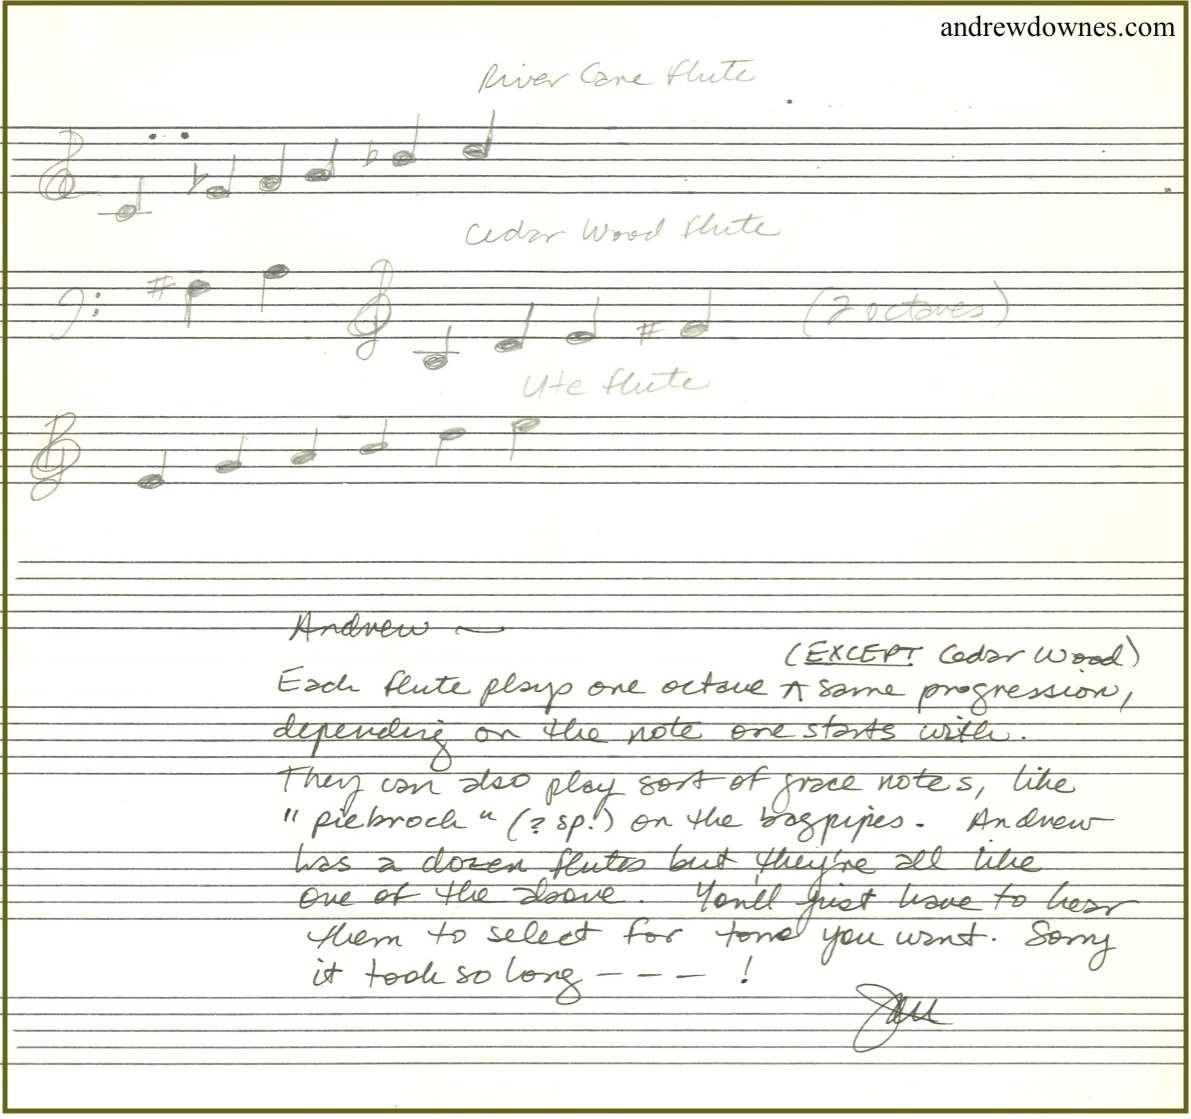 andrewdownes.com
River Cane flute
Cedar Wood flute
(2 octaves)
Ute flute
Andrew —
(EXCEPT Cedar Wood)
Each flute plays one octave ↑ same progression,
depending on the note one starts with.
They can also play sort of grace notes, like
"piebroch" (? sp.) on the bagpipes. Andrew
has a dozen flutes but they're all like
one of the above. You'll just have to hear
them to select for tone you want. Sorry
it took so long – – – !